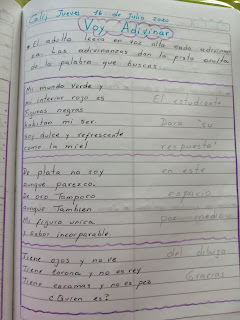 Cali, Jueves 16 de Julio 2020
Voy Adivinar
• El adulto leera en voz alta cada adivinan
za. Las adivinanzas dan la pista exacta
de la palabra que buscas...
Mi mundo verde y
mi interior rojo es
figuras negras
habitan mi ser.
soy dulce y refrescante
como la miel
El estudiante
Dara su
respuesta
De plata no soy
aunque parezca.
De oro Tampoco
aunque Tambien
Mi figura unica
y sabor incorporable
en este
espacio
por medio
Tiene ojos y no ve
Tiene corona y no es rey
Tiene escamas y no es pez
¿Quien es?
del dibujo
Gracias